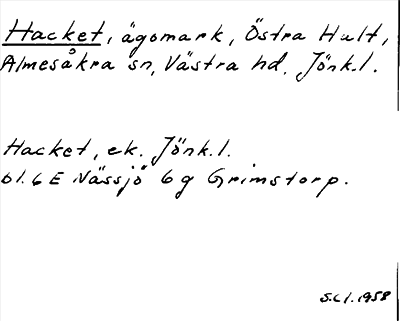 Hacket, ägomark, Östra Hult,
Almesåkra sn, Västra hd. Jönk.l.
Hacket, ek. Jönk.l.
bl. 6 E Nässjö 6 g Grimstorp.
S.C l. 1958